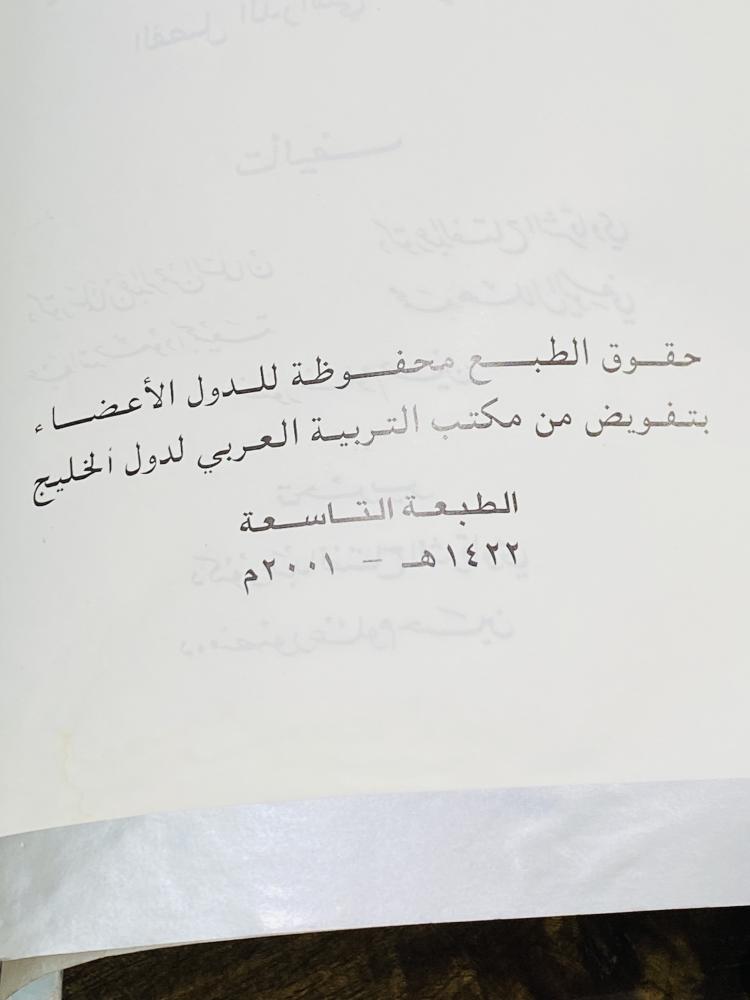 حقوق الطبع محفوظة للدول الأعضاء
بتفويض من مكتب التربية العربي لدول الخليج
الطبعة التاسعة
١٤٢٢هـ - ٢٠٠١م